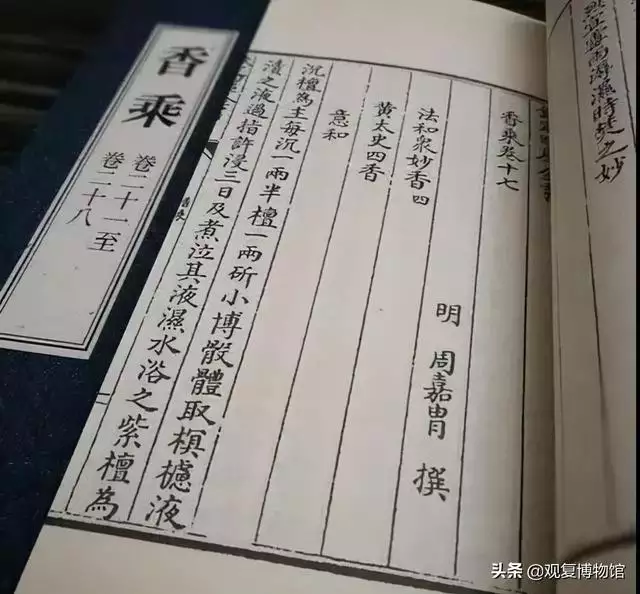 宜霪雨溽濕時焚之妙
香乘卷十七
明 周嘉胄 撰
法和衆妙香四
黄太史四香
意和
沉檀為主每沉一兩半檀一兩斫小博骰體取榠樝液
漬之液過指許浸三日及煮泣其液濕水浴之紫檀為
香乘
卷二十一至
卷二十八
头条 @观复博物馆